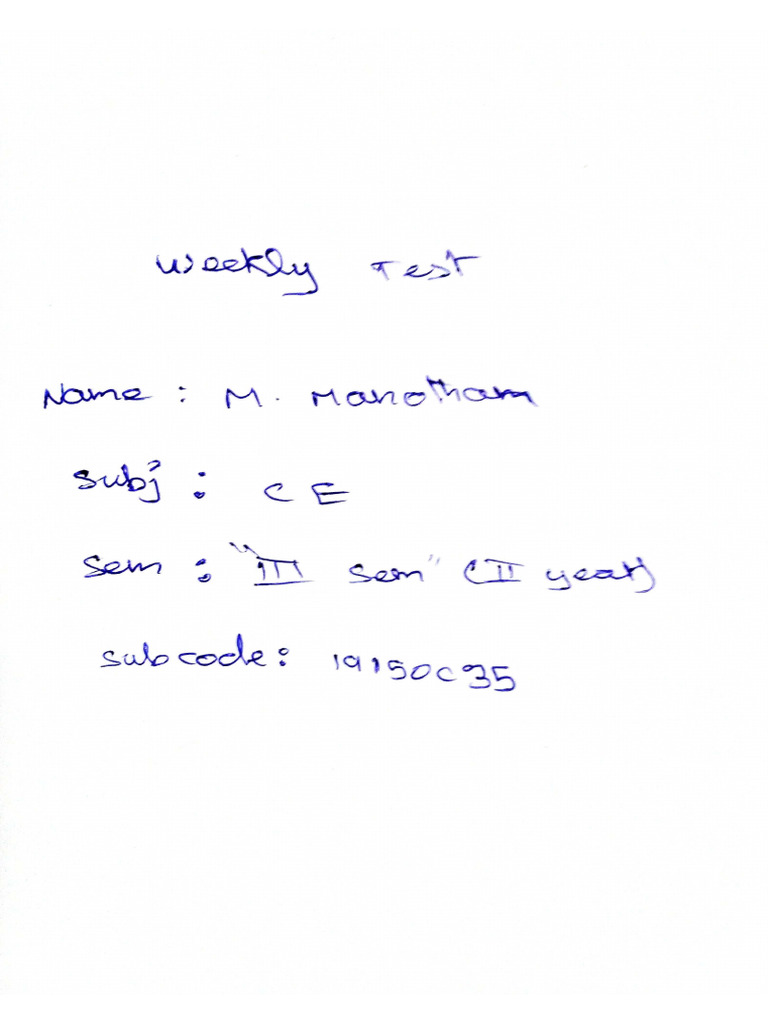 Weekly Test
Name : M. Manotham
Subj : CE
Sem : "III Sem" (II year)
Subcode: 19150C35